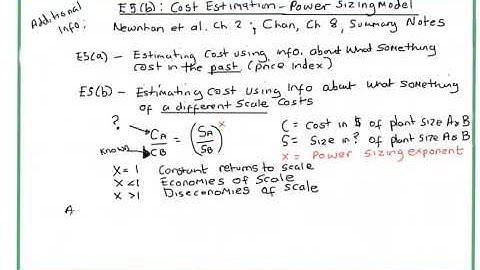 Additional Info:
E5(b): Cost Estimation - Power Sizing Model
Newnan et al. Ch 2; Chan, Ch 8, Summary Notes
E5(a) - Estimating cost using info. about what something
cost in the past (price index)
E5(b) - Estimating cost using info about what something
of a different scale costs
?
CA/CB = (SA/SB)^x
Known
C = Cost in $ of plant size A & B
S = Size in ? of plant size A & B
x = Power sizing exponent
X = 1 Constant returns to scale
X < 1 Economies of scale
X > 1 Diseconomies of scale
A